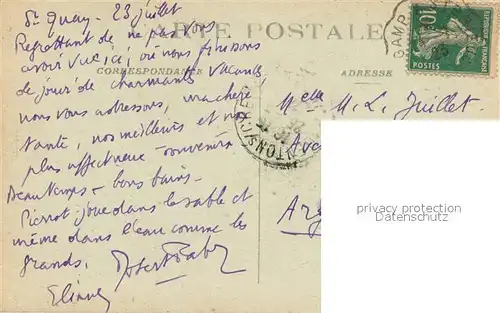 St Quay - 23 juillet
CARTE POSTALE
Regrettant de ne pas vous
avoir vue ici, où nous finissons
CORRESPONDANCE
ADRESSE
de jouir de charmantes vacances,
nous vous adressons, ma chère
tante, nos meilleurs et nos
plus affectueux souvenirs
Beau temps - bons bains.
Pierrot joue dans le sable et
même dans l'eau comme les
grands.
Melle M. L. Juillet
Ave
privacy protection
Datenschutz
10c
POSTES